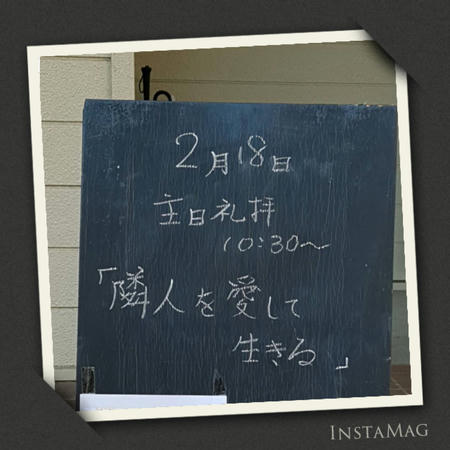 2月18日
主日礼拝
10:30〜
「隣人を愛して
生きる」
INSTAMAG